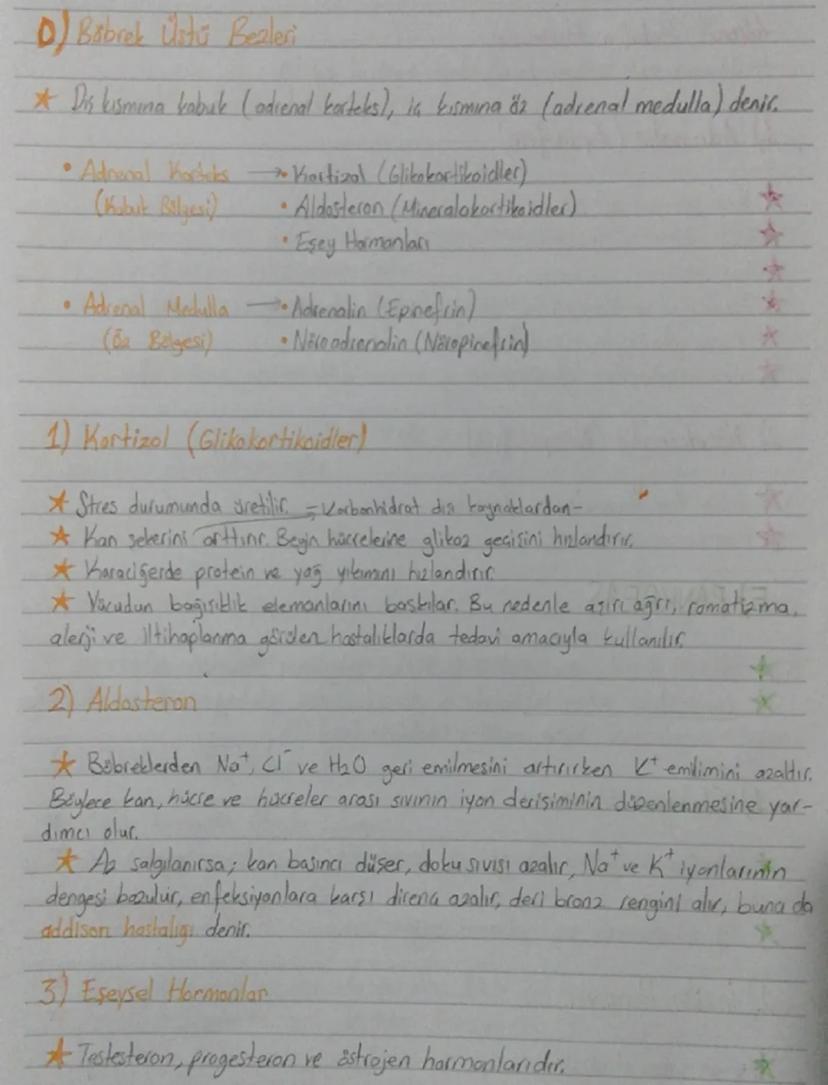 D) Böbrek Üstü Bezleri
★ Dış kısmına kabuk (adrenal korteks), iç kısmına öz (adrenal medulla) denir.
• Adrenal Korteks → • Kortizol (Glikokortikoidler)
(Kabuk Bölgesi) • Aldosteron (Mineralokortikoidler)
• Eşey Hormonları
• Adrenal Medulla → • Adrenalin (Epinefrin)
(Öz Bölgesi) • Nöroadrenalin (Nöropinefrin)
1) Kortizol (Glikokortikoidler)
★ Stres durumunda üretilir. Karbonhidrat dışı kaynaklardan-
★ Kan şekerini arttırır. Beyin hücrelerine glikoz geçişini hızlandırır.
★ Karaciğerde protein ve yağ yıkımını hızlandırır.
★ Vücudun bağışıklık elemanlarını baskılar. Bu nedenle aşırı ağrı, romatizma,
alerji ve iltihaplanma görülen hastalıklarda tedavi amacıyla kullanılır.
2) Aldosteron
★ Böbreklerden Na⁺, Cl⁻ ve H2O geri emilmesini artırırken K⁺ emilimini azaltır.
Böylece kan, hücre ve hücreler arası sıvının iyon derişiminin düzenlenmesine yar-
dımcı olur.
★ Az salgılanırsa; kan basıncı düşer, doku sıvısı azalır, Na⁺ ve K⁺ iyonlarının
dengesi bozulur, enfeksiyonlara karşı direnç azalır, deri bronz rengini alır, buna da
addison hastalığı denir.
3) Eşeysel Hormonlar
★ Testesteron, progesteron ve östrojen hormonlarıdır.